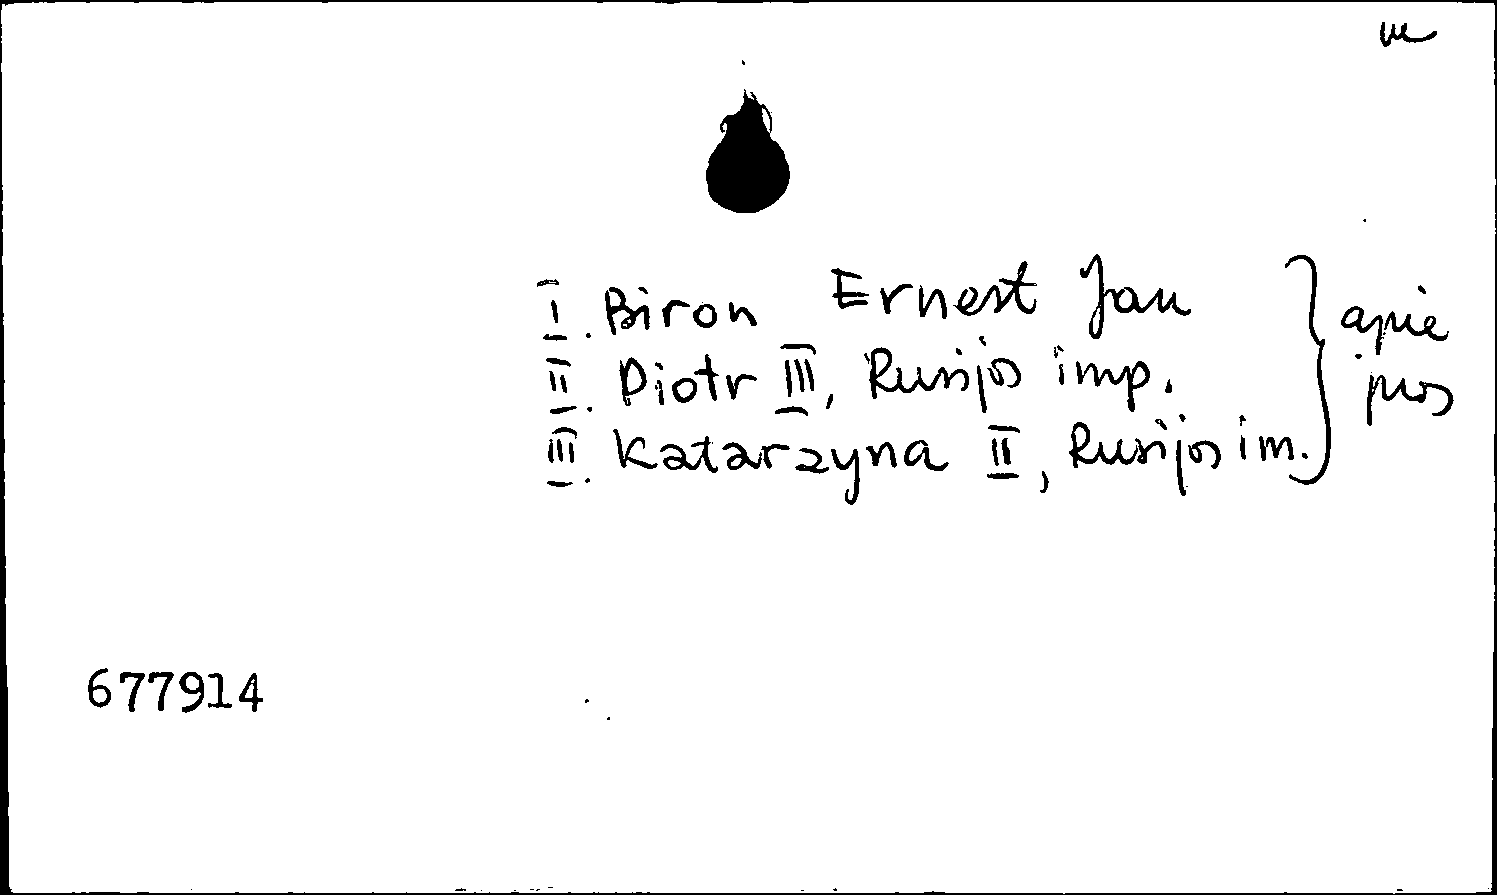 I. Biron Ernest Jan
II. Piotr III, Rusijos imp.
III. Katarzyna II, Rusijos im.
} apie
juos
677914